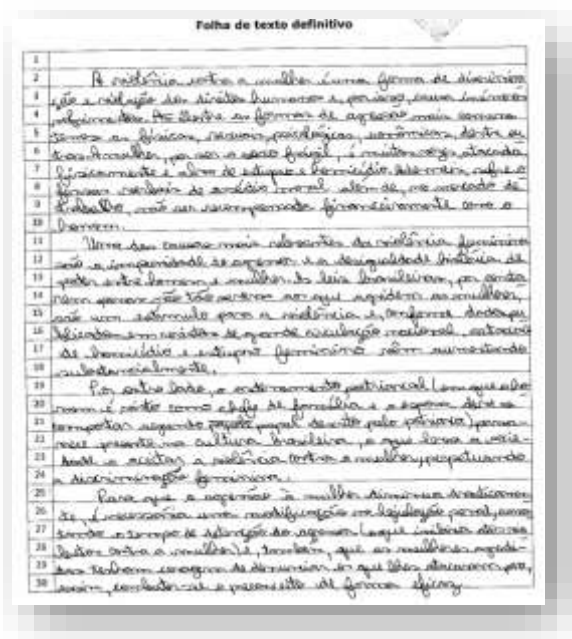 Folha de texto definitivo
1
2 A violência contra a mulher é uma forma de discrimina
3 ção e violação dos direitos humanos e, por isso, causa inúmeros
4 sofrimentos. Dentre as formas de agressão mais comuns
5 temos as físicas, sexuais, psicológicas, econômicas, dentre ou
6 tras. A mulher, por ser o sexo frágil, é muitas vezes atacada
7 fisicamente e alvo de estupro e homicídio. Ademais, sofre
8 de assédio moral além de, no mercado de
9 trabalho, não ser recompensada financeiramente como o
10 homem.
11 Uma das causas mais relevantes da violência feminina
12 são a impunidade do agressor e a desigualdade histórica de
13 poder entre homens e mulheres. As leis brasileiras, por
14 penas não tão severas aos que agridem as mulheres,
15 são um estímulo para a violência e, conforme dados pu
16 blicados em revistas de grande circulação nacional,
17 de homicídio e estupro feminino vêm aumentando
18 substancialmente.
19 Por outro lado, o patriarcal (em que o ho
20 mem é visto como chefe de família e a esposa deve se
21 comportar segundo papel descrito pelo patriarca) perma
22 nece presente na cultura brasileira, o que leva a socie
23 dade a aceitar a violência contra a mulher, perpetuando
24 a discriminação feminina.
25 Para que a agressão à mulher diminua drasticamen
26 te, é necessária uma modificação na legislação penal, aumen
27 tando o tempo de detenção do agressor (o que inibiria
28 contra a mulher) e, também, que as mulheres agredi
29 das tenham coragem de denunciar os que lhes atacaram para,
30 assim, combater-se o preconceito de forma eficaz.